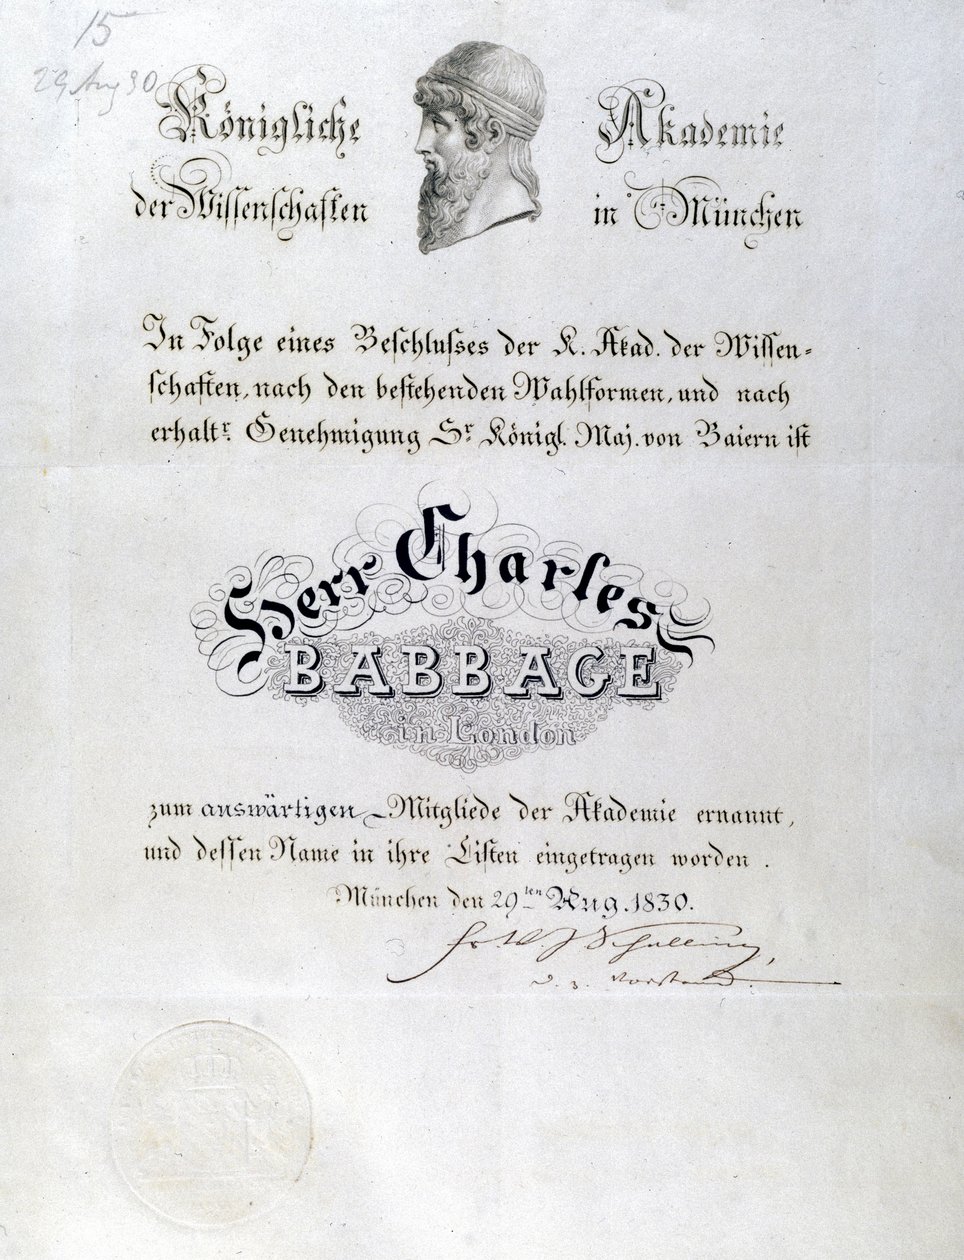 15
29 Aug 30
Königliche Akademie
der Wissenschaften in München
In Folge eines Beschlusses der K. Akad. der Wissen-
schaften, nach den bestehenden Wahlformen, und nach
erhaltr. Genehmigung Sr. Königl. Maj. von Baiern ist
Herr Charles
BABBAGE
in London
zum auswärtigen Mitgliede der Akademie ernannt,
und dessen Name in ihre Listen eingetragen worden.
München den 29ten Aug. 1830.
Fr. W. J. Schelling,
d. z. Vorstand.